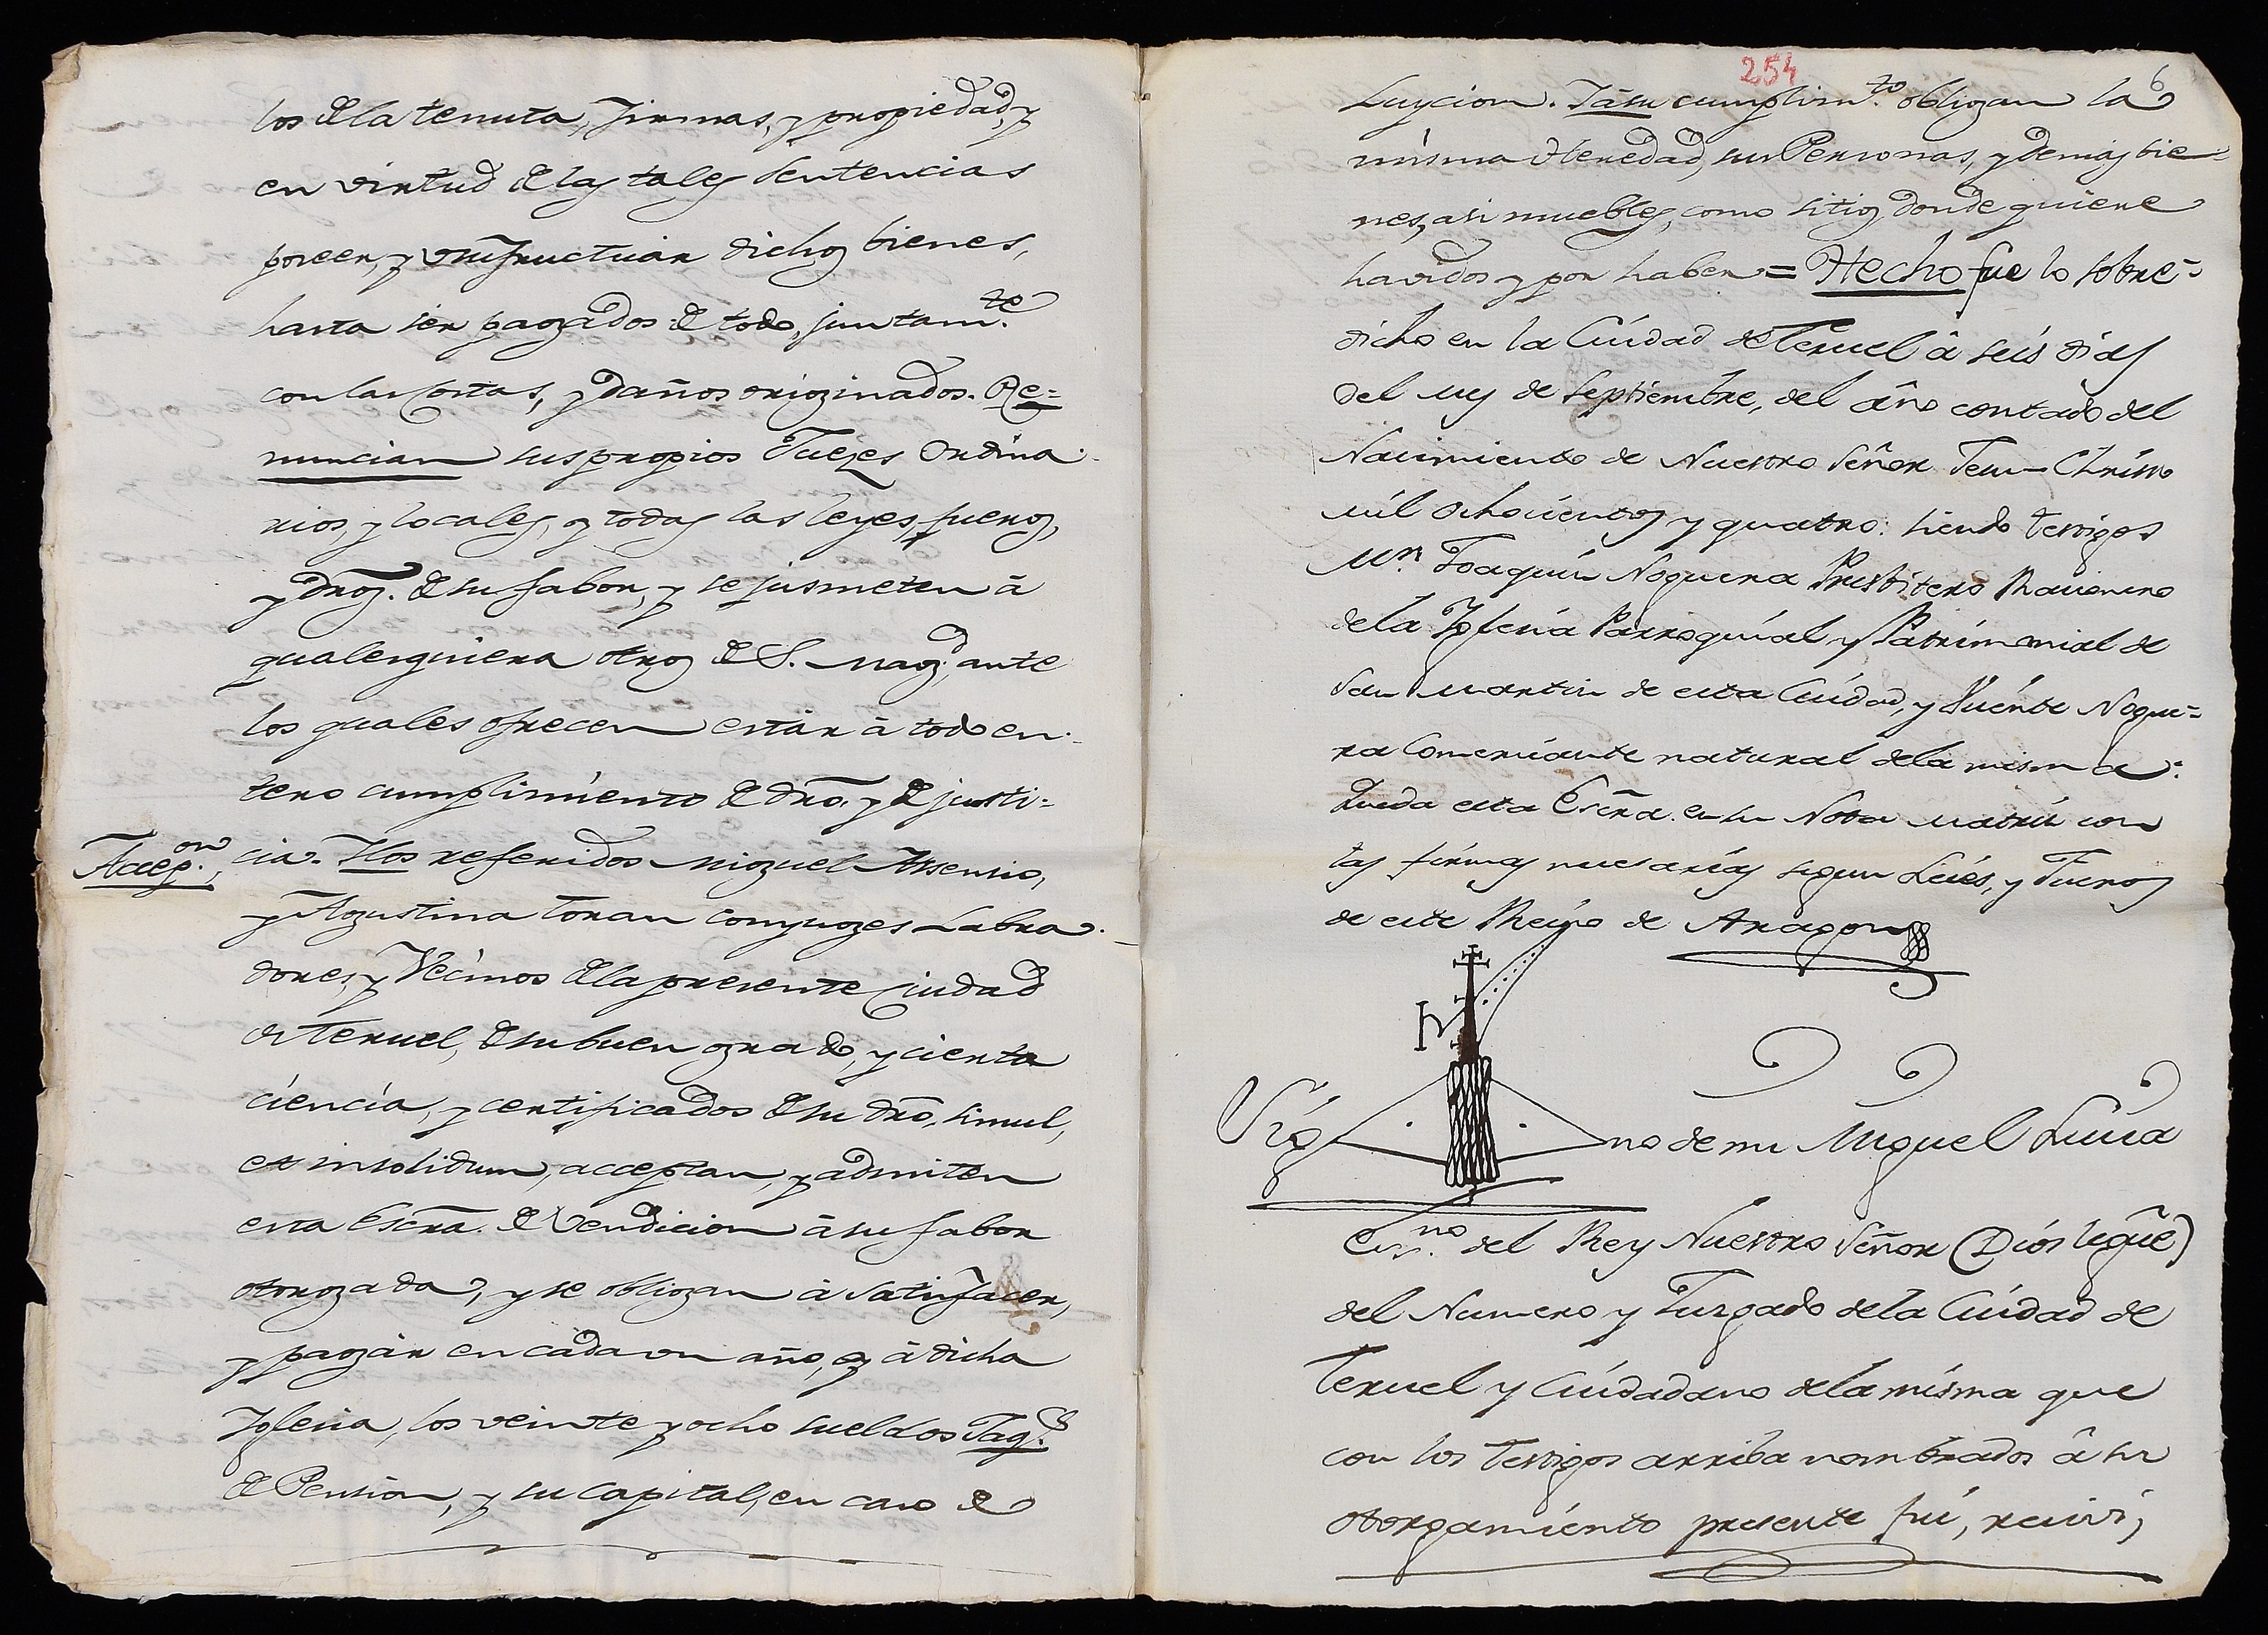 los de la tenuta, firmas, y propiedad, y
en virtud de las tales sentencias
poseer, y usufructuar dichos bienes,
hasta ser pagados de todo, juntam.te
con las Costas, y daños originados. Re=
nuncian sus propios Juezes Ordina-
rios, y locales, y todas las leyes, fueros,
y dros. de su fabor, y se jusmeten á
qualesquiera otros de S. Mag.d, ante
los quales ofrecen estár á todo en-
tero cumplimiento de dro. y de justi=
Accep.on,
cia. Y los referidos Miguel Assensio,
y Agustina Toran conyuges Labra-
dores, y Vecinos de la presente Ciudad
de Teruel, de su buen grado, y cierta
ciencia, y certificados de su dro, simul,
et insolidum, acceptan, y admiten
esta Escra. de Vendicion á su fabor
otorgada, y se obligan á satisfacer,
y pagár en cada un año, y á dicha
Iglesia, los veinte y ocho sueldos Jaq.s
de Pension, y su Capital, en caso de
254
6
Luycion. Y á su cumplim.to obligan la
misma Heredad, sus Personas, y demás bie=
nes, asi muebles, como sitios donde quiere
havidos y por haber = Hecho fue lo sobre=
dicho en la Ciudad de Teruel â seis dias
del mes de Septiembre, del âño contado del
Nacimiento de Nuestro Señor Jesu-Christo
mil ochocientos y quatro: siendo testigos
Mn. Joaquin Noguera Presbitero Racionero
de la Iglesia Parroquial y Patrimonial de
San Martin de esta Ciudad, y Vicente Nogue=
ra Comerciante natural de la misma:
Queda esta Escra. en su Nota Matriz con
las firmas nesesarias segun Leies, y Fueros
de este Reyno de Aragon
Sig no de mi Miguel Luria
Es.no del Rey Nuestro Señor (Dios legue)
del Numero y Juzgado de la Ciudad de
Teruel y Ciudadano de la misma que
con los testigos arriba nombrados â su
otorgamiento presente fui, recivi,